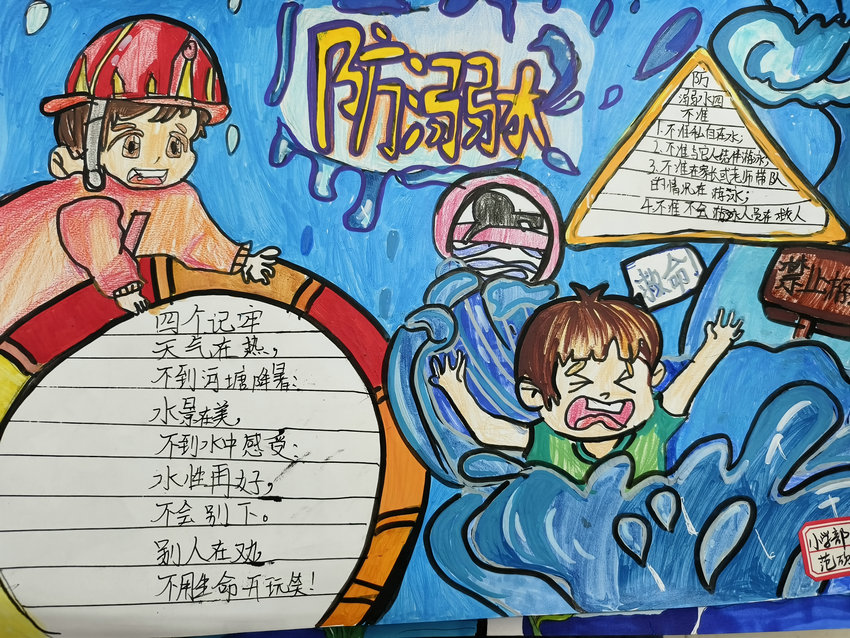 防溺水
防
溺水四
不准
1.不准私自在水;
2.不准与它人结伴游水;
3.不准在家长式老师带队
的情况在游泳;
4.不准不会游泳人员在救人
救命!
禁止
四个记牢
天气在热,
不到河塘降暑;
水景在美,
不到水中感受;
水性再好,
不会别下。
别人在劝
不用生命开玩笑!
小学部
范